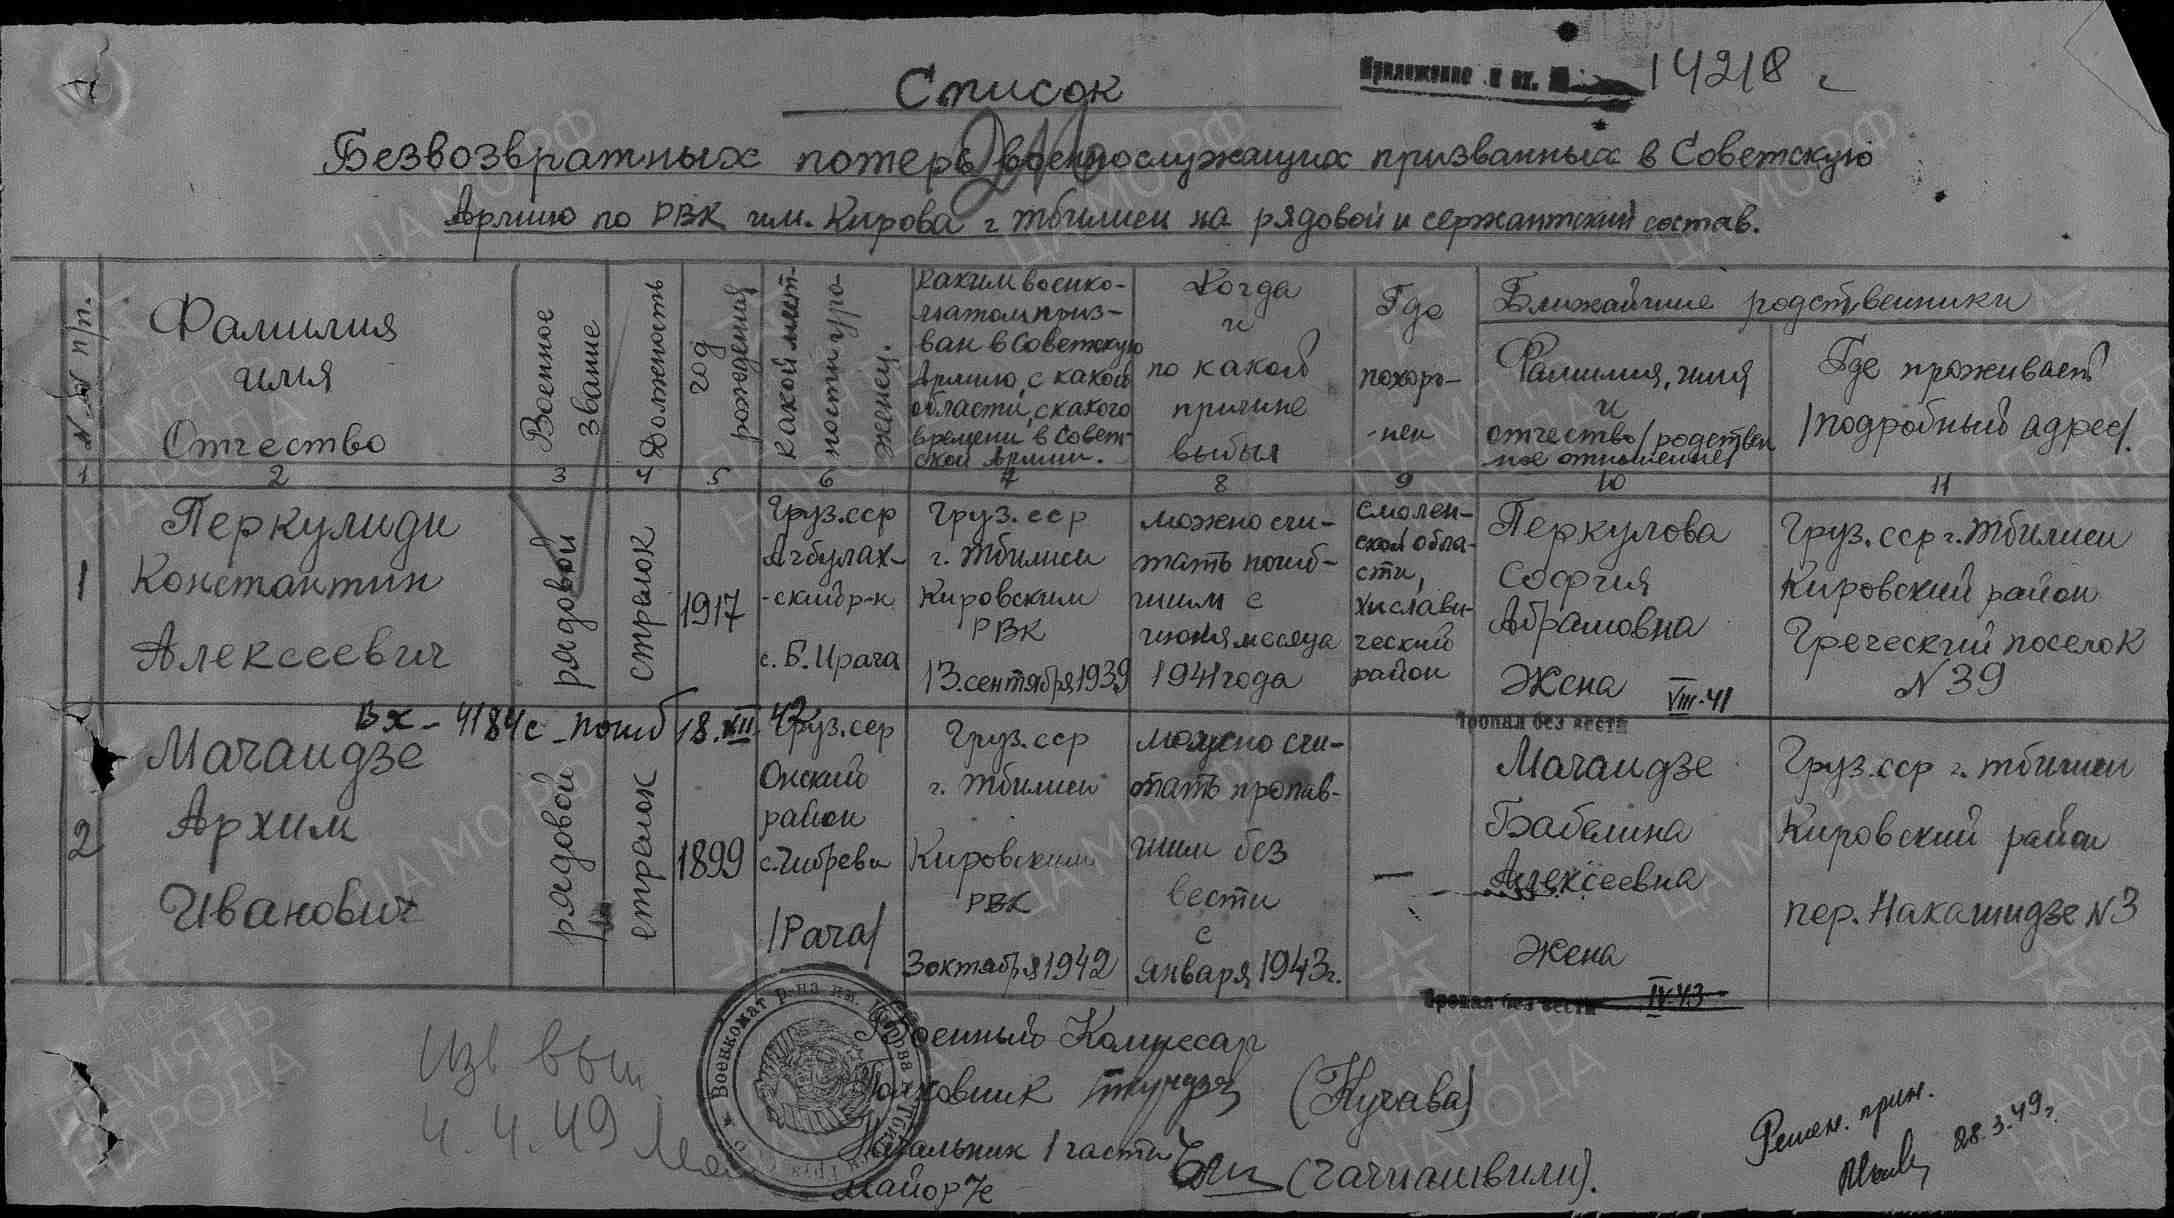 Приложение к вх. № 14218 с
Список
Безвозвратных потерь военнослужащих призванных в Советскую
Армию по РВК им. Кирова г Тбилиси на рядовой и сержантский состав.
№№ п/п.
Фамилия
имя
Отчество
Военное
звание
Должность
год
рождения
какой мест-
ности уро-
женец.
Каким военко-
матом приз-
ван в Советскую
Армию, с какой
области, с какого
времени в Совет-
ской Армии.
Когда
и
по какой
причине
выбыл
Где
похоро-
-нен
Ближайшие родственники
Фамилия, имя
и
отчество /родствен
ное отношение/
Где проживает
/подробный адрес/.
1 2 3 4 5 6 7 8 9 10 11
1
Перкулиди
Константин
Алексеевич
рядовой
стрелок
1917
Груз.сср
Агбулах-
-ский р-н
с. Б. Ирага
Груз. сср
г. Тбилиси
Кировским
РВК
13.сентября 1939
можно счи-
тать погиб-
шим с
июня месяца
1941 года
Смолен-
ской обла-
сти,
Хислави-
ческий
район
Перкулова
София
Абрамовна
Жена
Груз. сср г. Тбилиси
Кировский район
Греческий поселок
№ 39
VIII-41
Пропал без вести
Вх - 4184с - погиб 18.XII.42
2
Мачаидзе
Архим
Иванович
рядовой
стрелок
1899
Груз.сср
Онский
район
с.Чибреви
/Рача/
Груз. сср
г. Тбилиси
Кировским
РВК
3 октября 1942
можно счи-
тать пропав-
шим без
вести
с
января 1943г.
—
Мачаидзе
Бабелина
Алексеевна
Жена
Груз.сср г. Тбилиси
Кировский район
пер. Накашидзе №3
Пропал без вести IV-43
Военный Комиссар
Полковник (Кучава)
Начальник 1 части
Майор
(Чачиашвили).
Военкомат р-на им. Кирова г. Тбилиси
Изв выс
4.4.49
Решен. прин.
28.3.49г.
ЦА МО РФ
ПАМЯТЬ
НАРОДА
1941-1945